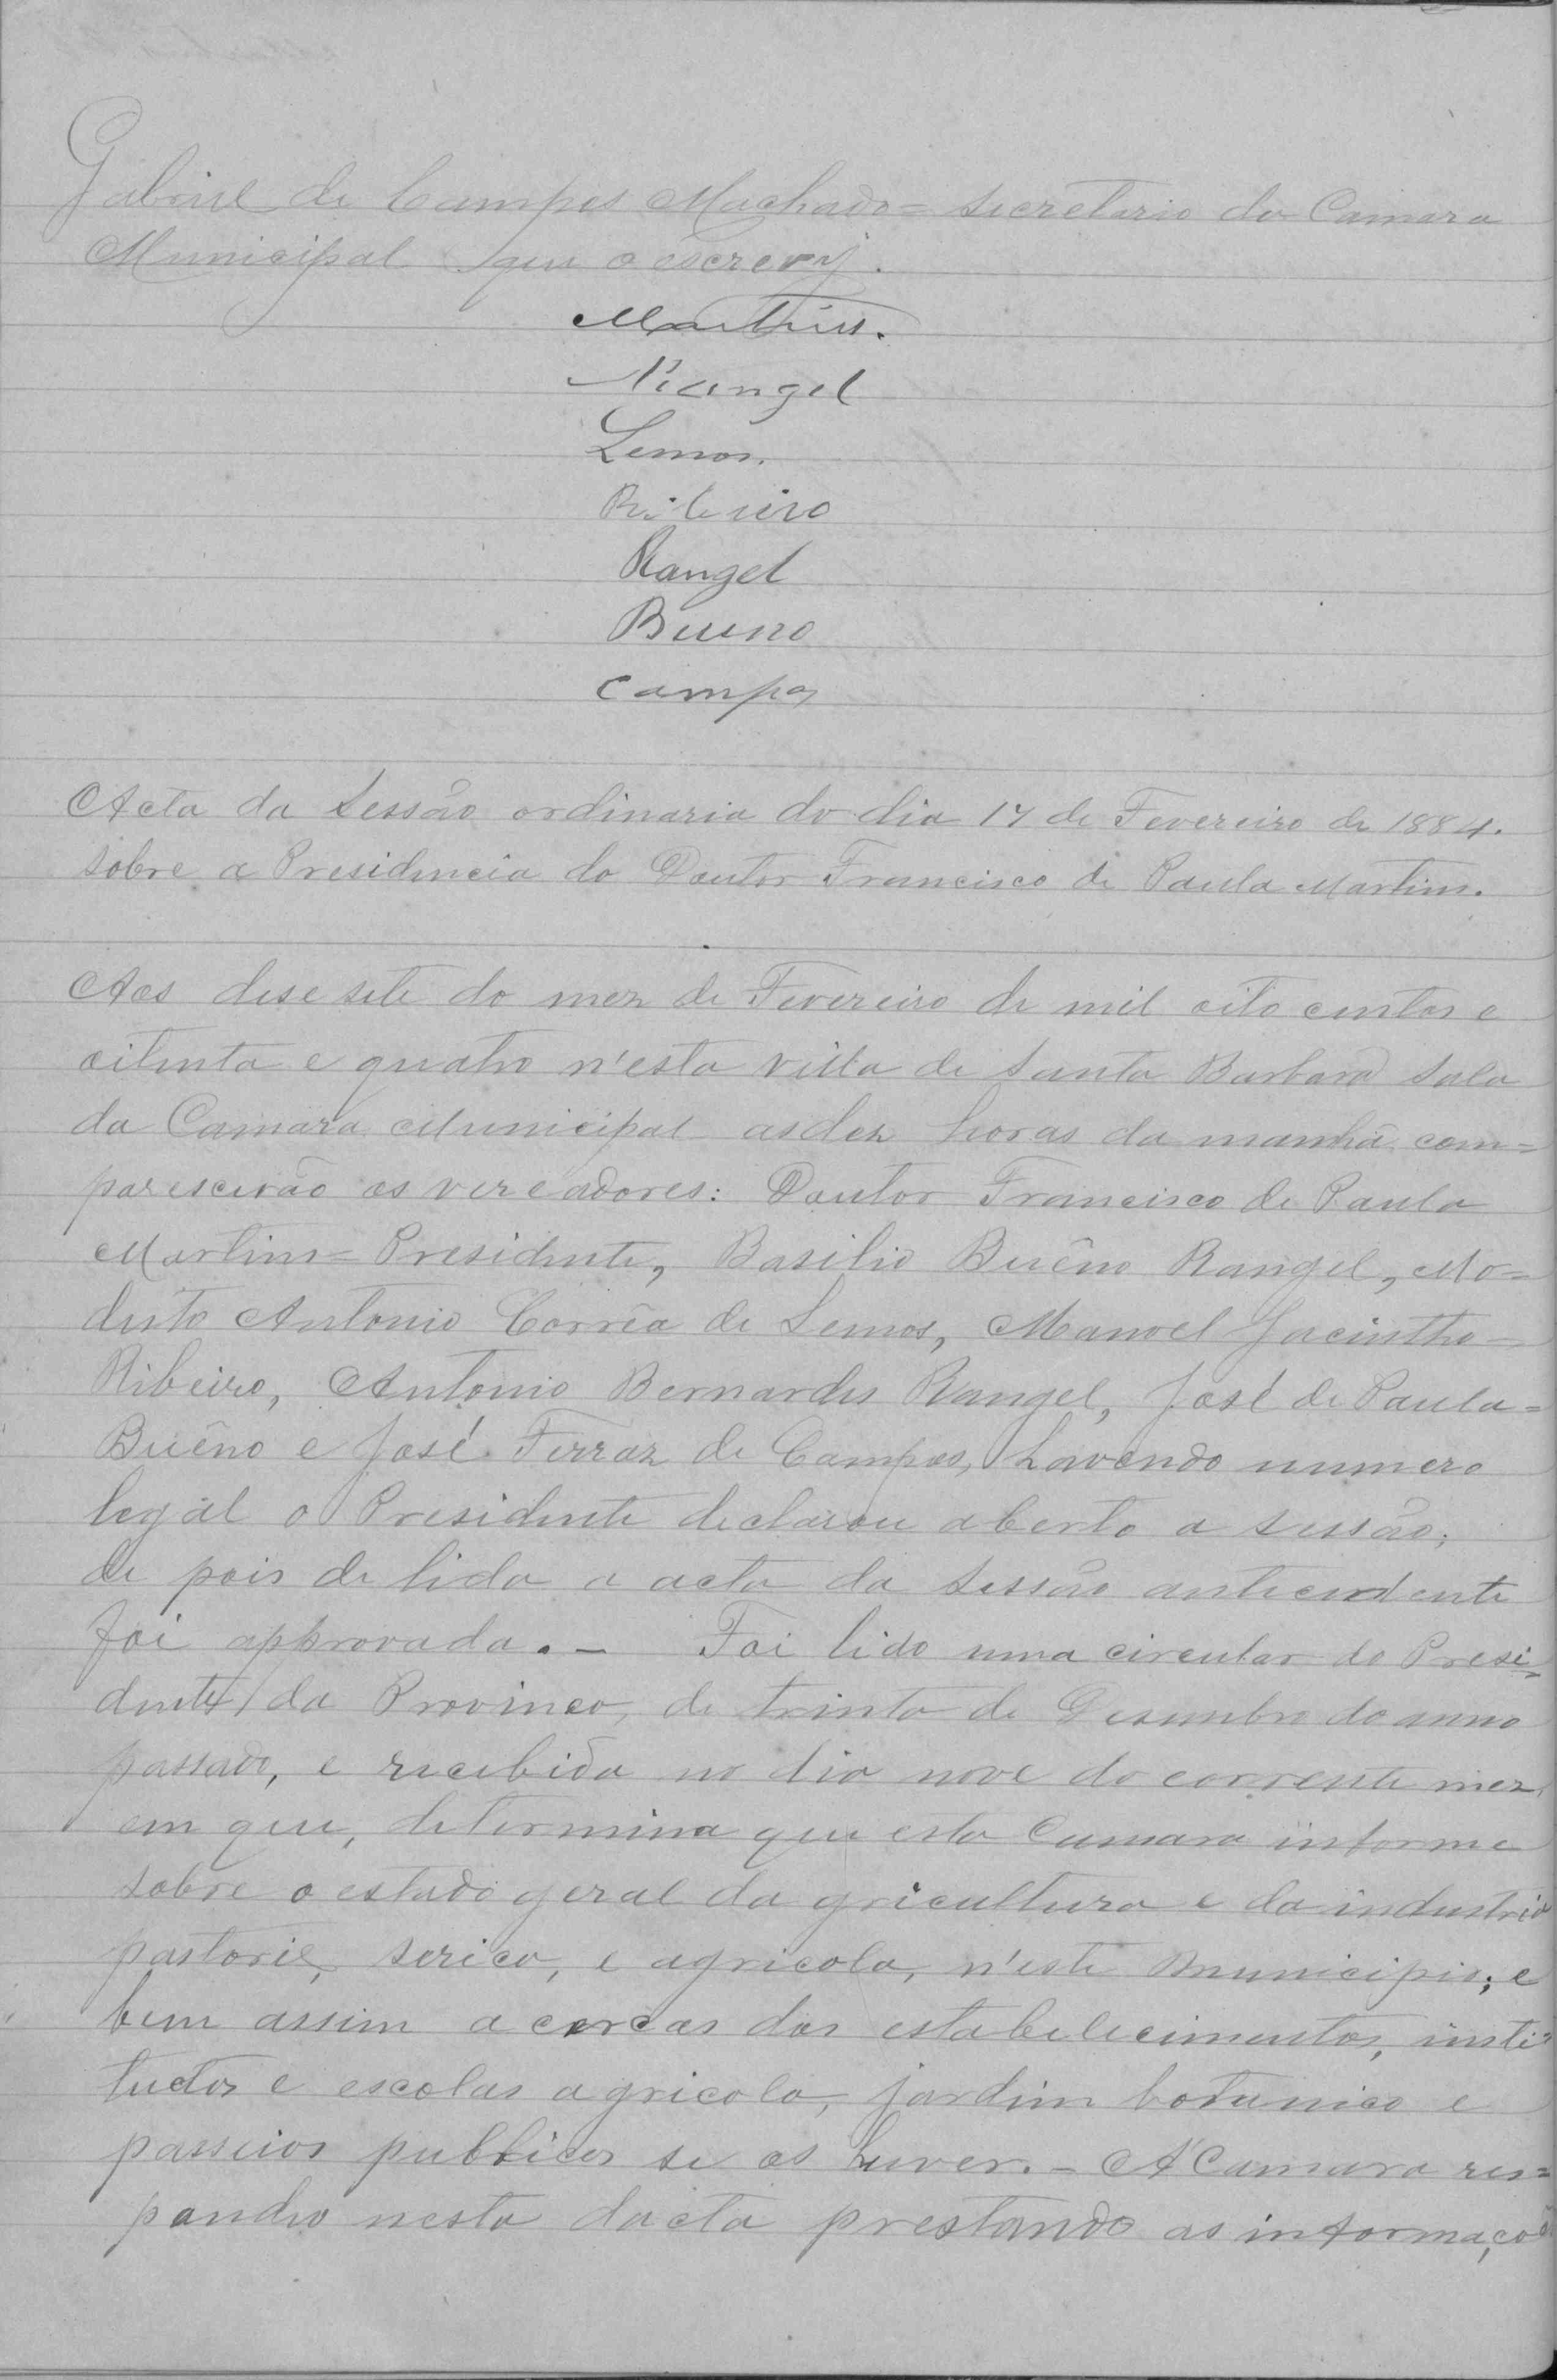 Gabriel de Campos Machado = secretario da Camara
Municipal que o escrevy.
Martins.
Rangel
Lemos.
Ribeiro
Rangel
Bueno
Campos
Acta da Sessão ordinaria do dia 17 de Fevereiro de 1884.
sobre a Presidencia do Doutor Francisco de Paula Martins.
Aos dese sete do mez de Fevereiro de mil oito centos e
oitenta e quatro n'esta villa de Santa Barbara sala
da Camara Municipal as dez horas da manhã com=
parescerão os vereadores: Doutor Francisco de Paula
Martins = Presidente, Basilio Buêno Rangel, Mo=
desto Antonio Corrêa de Lemos, Manoel Jacintho
Ribeiro, Antonio Bernardes Rangel, José de Paula =
Buêno e José Ferraz de Campos, havendo numero
legal o Presidente declarou aberto a sessão;
de pois de lida a acta da sessão antecendente
foi approvada. - Foi lido uma circular do Presi=
dente da Provinca, de trinta de Desembro do anno
passado, e recebida no dia nove do corrente mez,
em que, determina que esta Camara informe
sobre o estado geral da gricultura e da industria
pastoril, serica, e agricola, n'este municipio; e
bem assim a cercas dos estabelecimentos, insti=
tudos e escolas agricola, jardim botanico e
passeios publicos se os huver. - A' Camara res=
pondeo nesta dacta prestando as informaçoẽ